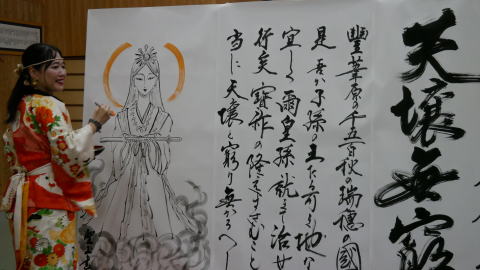 天壌無窮
豐葦原の千五百秋の瑞穂の國
是吾か子孫の王たる可き地な
宜しく爾皇孫就きて治せ
行矣寶祚の隆えまさむこと
當に天壌と窮り無かるへし